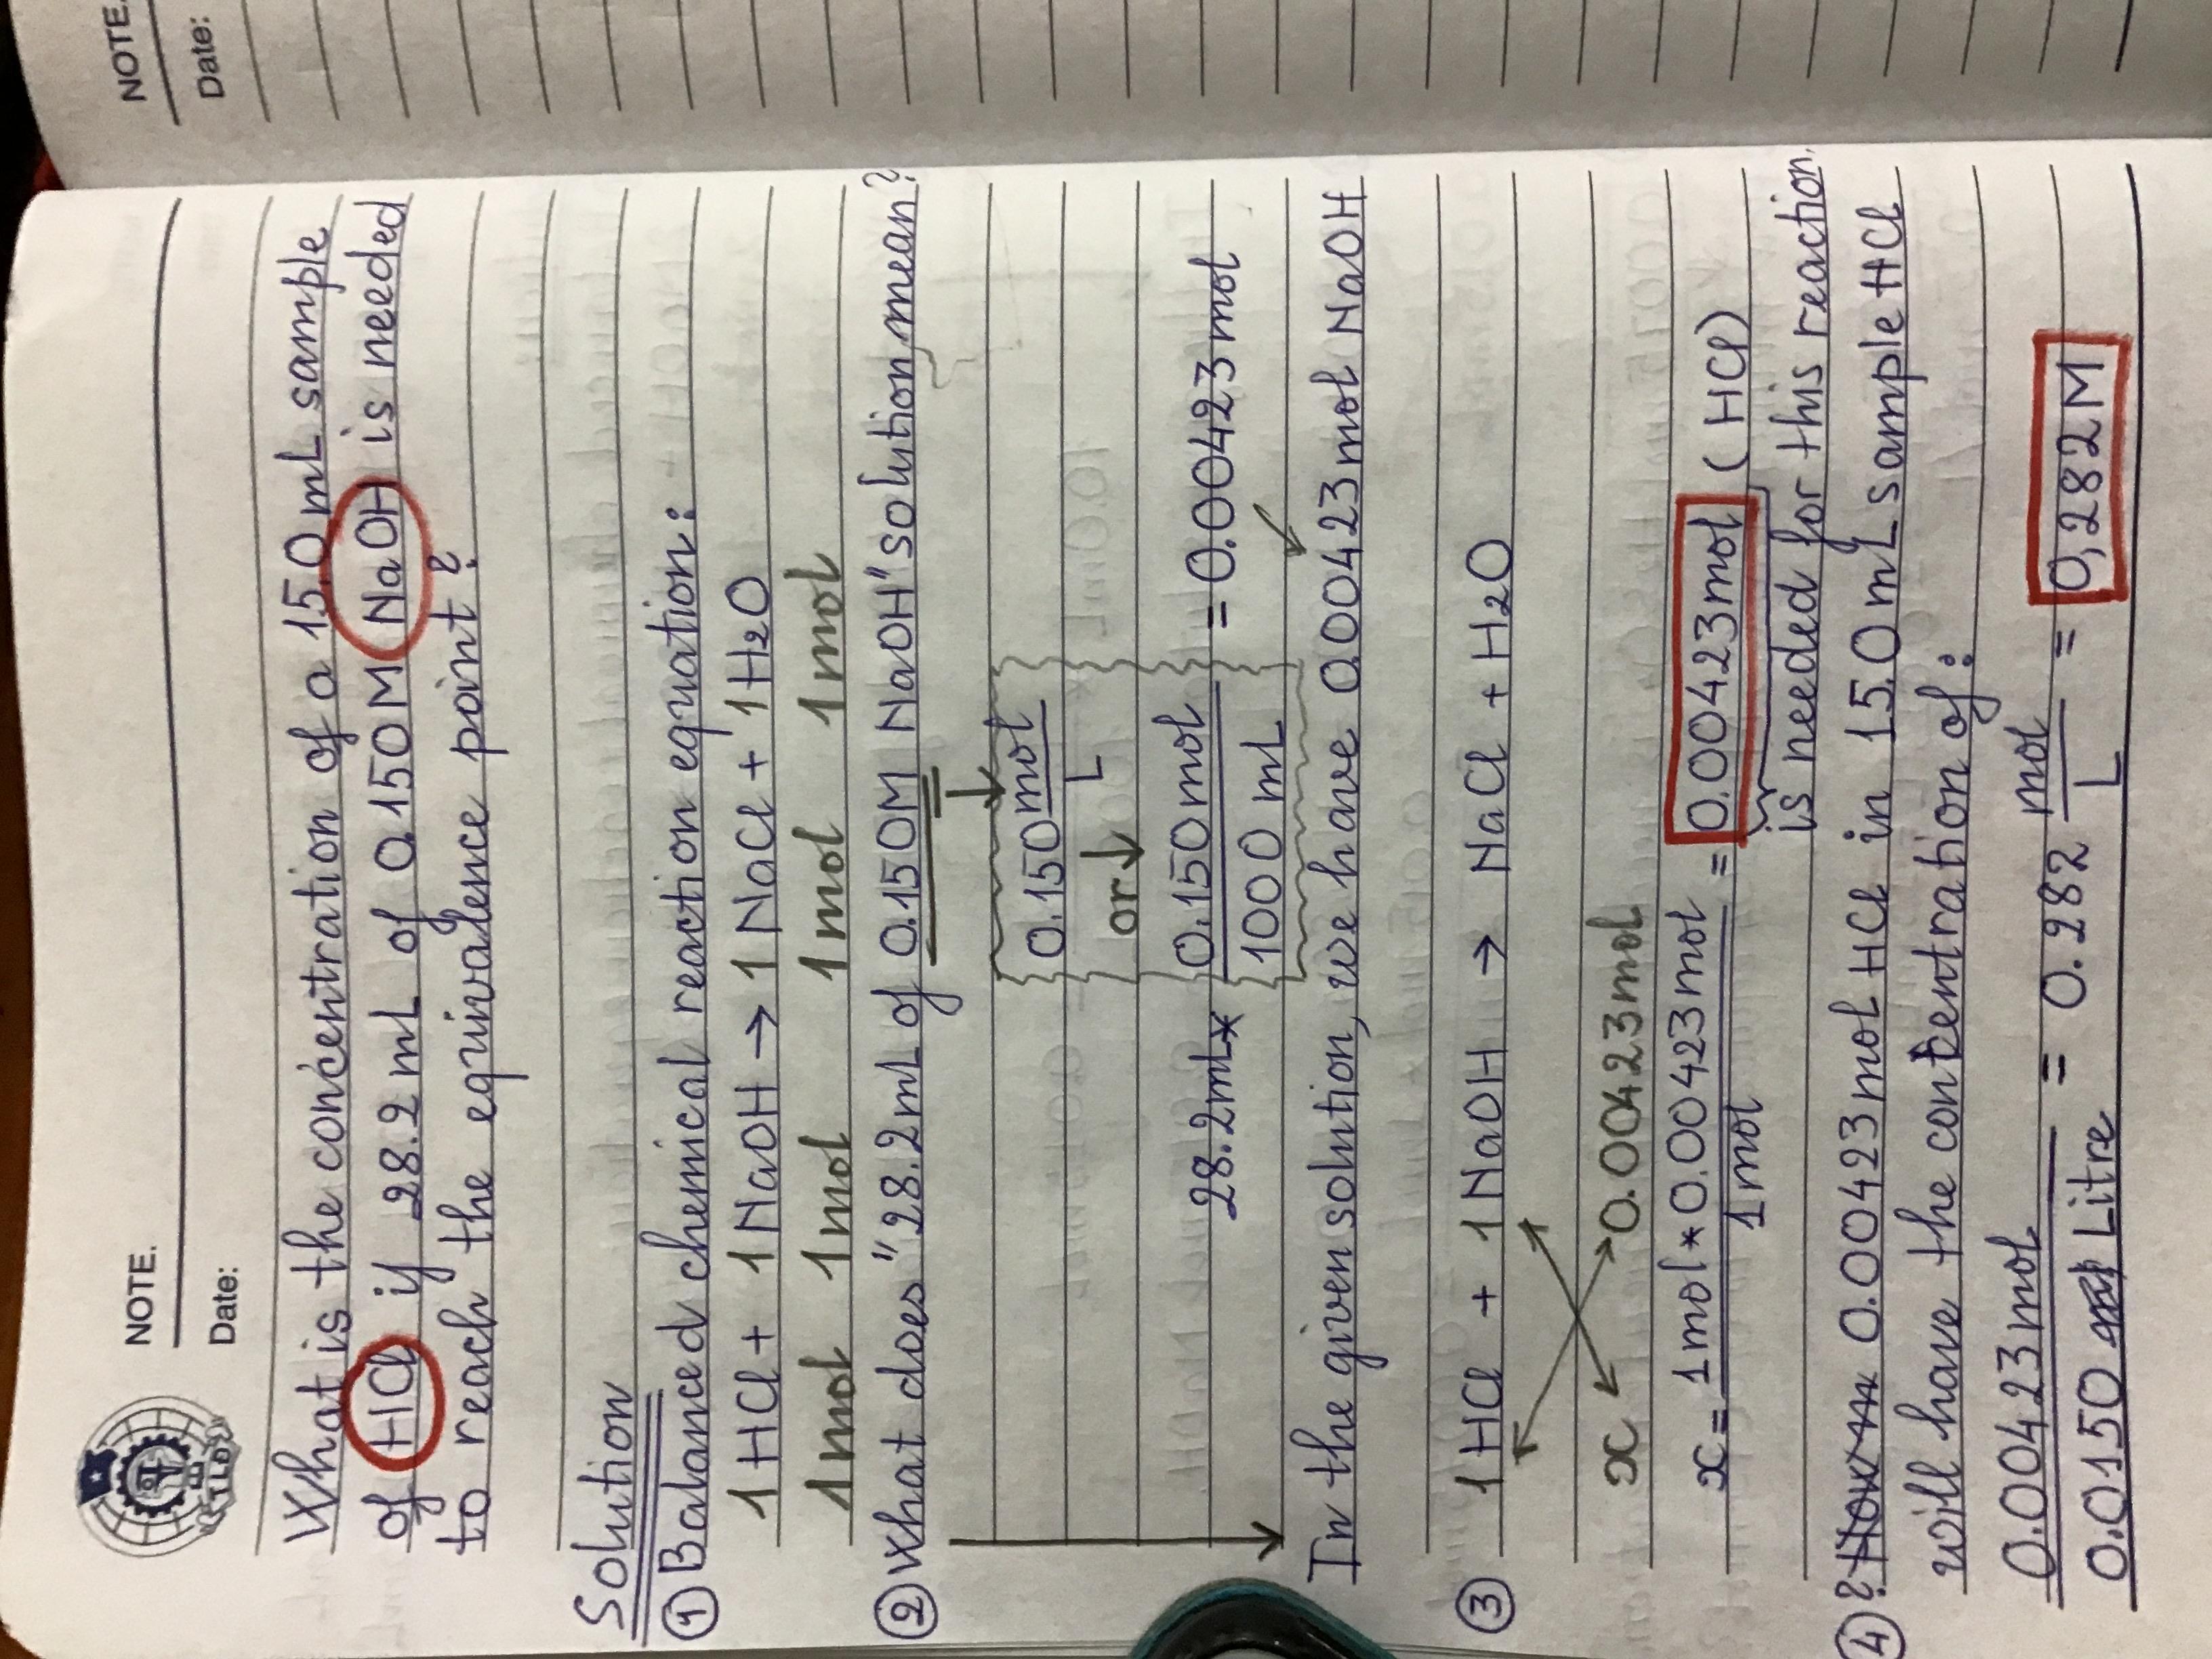 NOTE.
Date:
What is the concentration of a 15.0 mL sample
of HCl if 28.2 mL of 0.150 M NaOH is needed
to reach the equivalence point?
Solution
① Balanced chemical reaction equation:
1 HCl + 1 NaOH → 1 NaCl + 1 H₂O
1mol 1mol 1mol 1mol
② What does "28.2mL of 0.150M NaOH" solution mean?
0.150 mol
L
or
28.2mL * 0.150 mol = 0.00423 mol
1000 mL
In the given solution, we have 0.00423 mol NaOH
③ 1 HCl + 1 NaOH → NaCl + H₂O
x 0.00423 mol
x = 1mol * 0.00423 mol = 0.00423 mol (HCl)
1 mol
is needed for this reaction.
④ ? 0.00423 mol HCl in 15.0 mL sample HCl
will have the concentration of:
0.00423 mol = 0.282 mol = 0,282 M
0.0150 Litre L
NOTE.
Date: